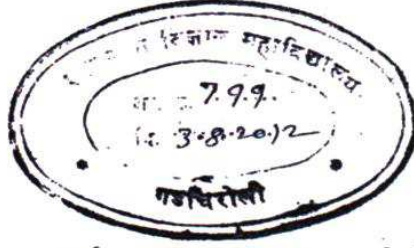 विज्ञान महाविद्यालय
7.9.9.
3.8.2012
गडचिरोली